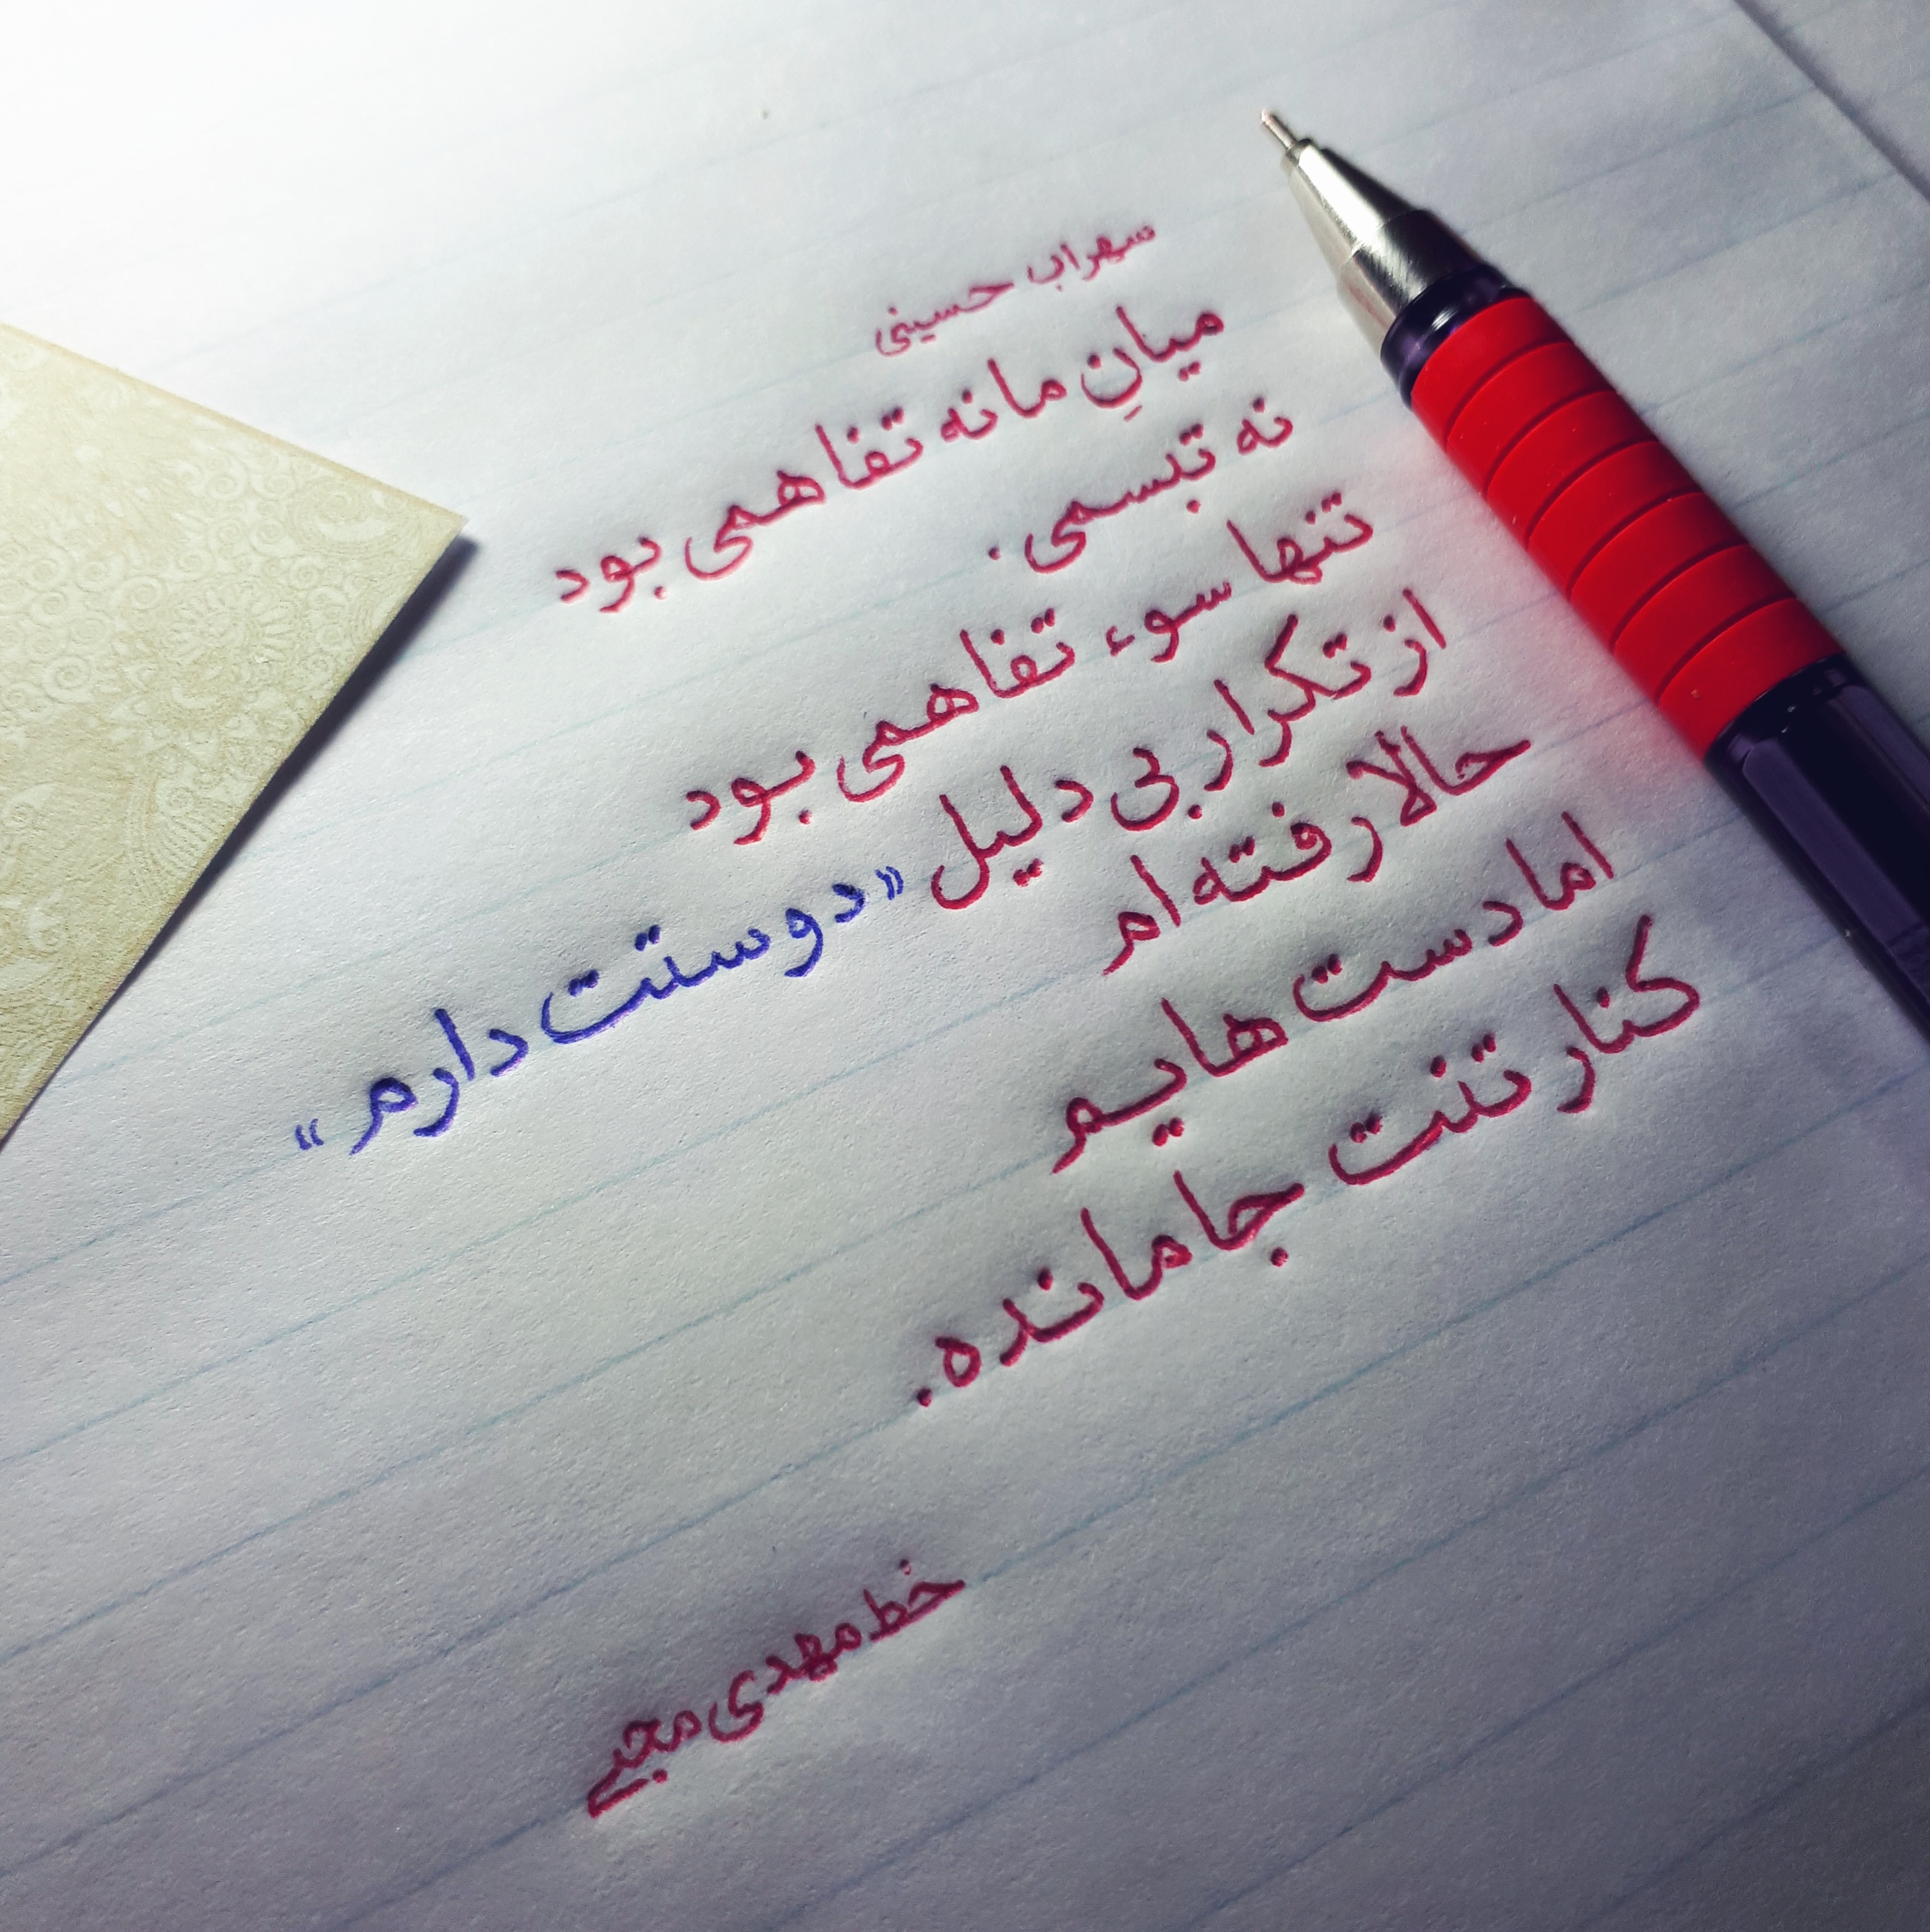 سهراب حسینی
میانِ ما نه تفاهمی بود
نه تبسمی.
تنها سوء تفاهمی بود
از تکرار بی دلیل «دوستت دارم»
حالا رفته ام
اما دست هایم
کنار تنت جا مانده.
خط مهدی